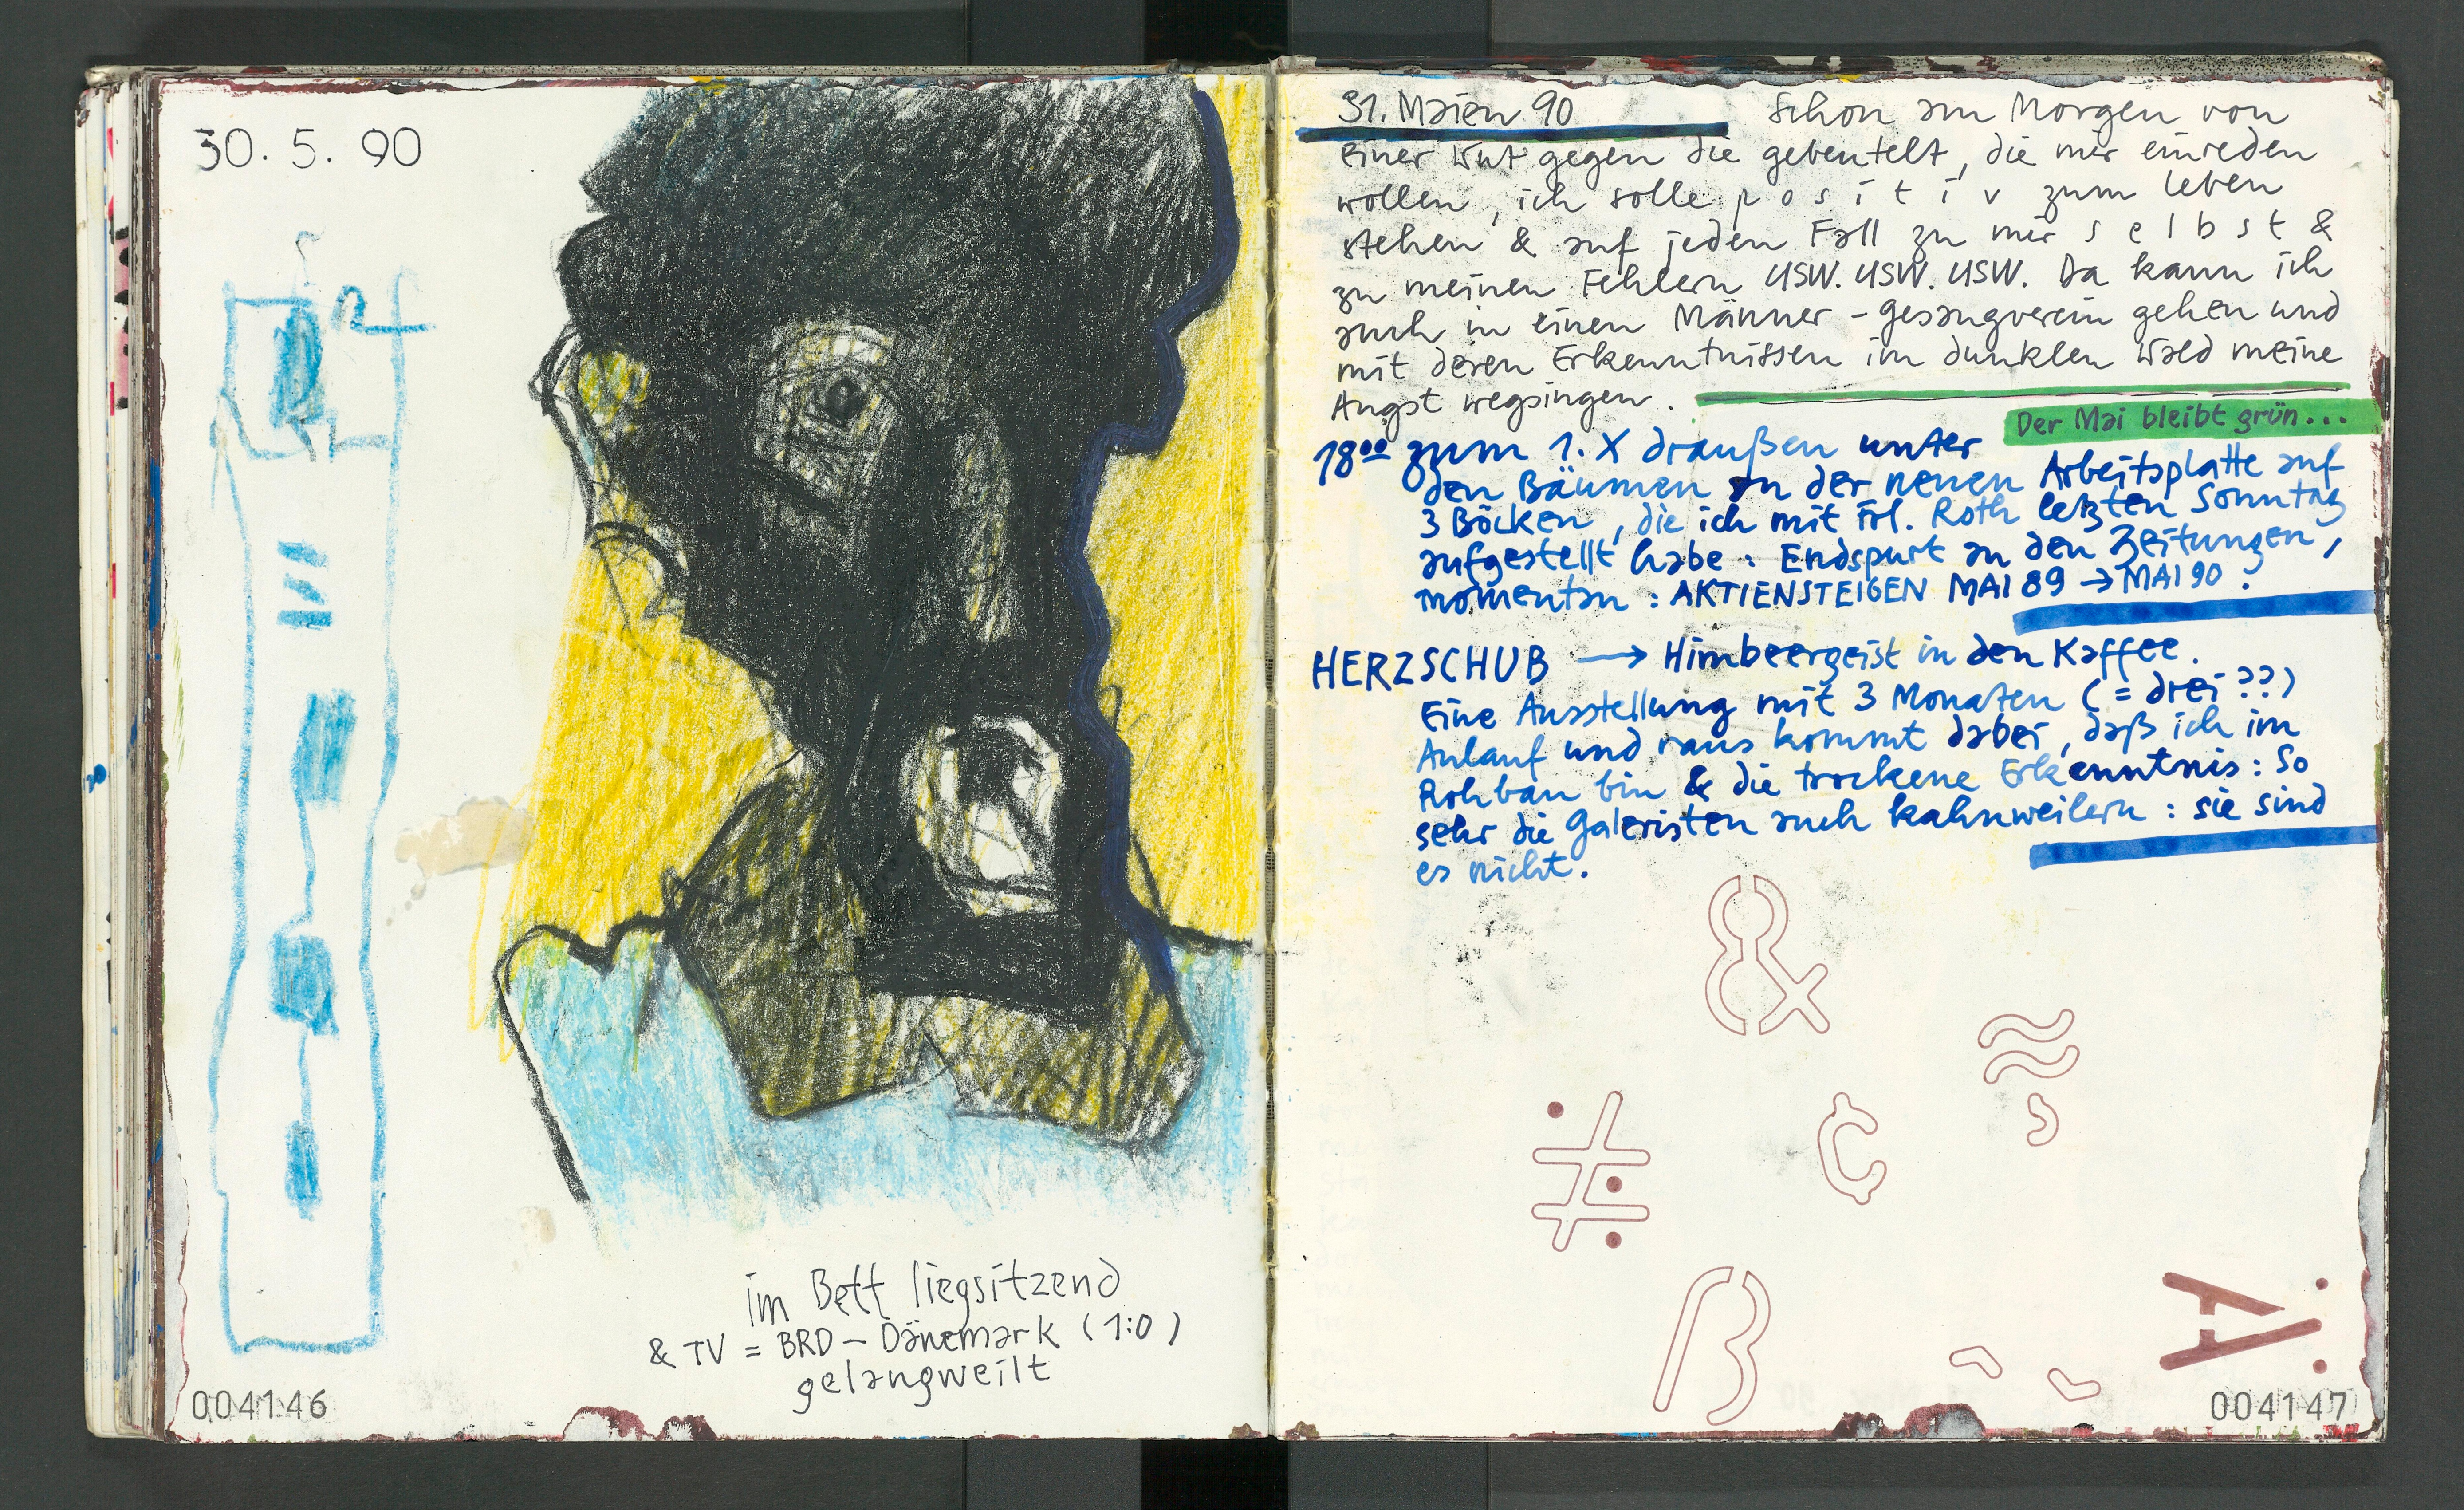 30. 5. 90
im Bett liegsitzend
& TV = BRD – Dänemark (1:0)
gelangweilt
004146
31. Maien 90 Schon am Morgen von
einer Wut gegen die gebeutelt, die mir einreden
wollen, ich solle p o s i t i v zum Leben
stehen & auf jeden Fall zu mir s e l b s t &
zu meinen Fehlern USW. USW. USW. Da kann ich
auch in einen Männer-Gesangverein gehen und
mit deren Erkenntnissen im dunklen Wald meine
Angst wegsingen.
Der Mai bleibt grün...
18°° zum 1. X draußen unter
den Bäumen an der neuen Arbeitsplatte auf
3 Böcken, die ich mit Frl. Roth letzten Sonntag
aufgestellt habe: Endspurt an den Zeitungen,
momentan: AKTIENSTEIGEN MAI 89 → MAI 90.
HERZSCHUB → Himbeergeist in den Kaffee.
Eine Ausstellung mit 3 Monaten (= drei??)
Anlauf und raus kommt dabei, daß ich im
Rohbau bin & die trockene Erkenntnis: So
sehr die Galeristen auch kahnweilern: sie sind
es nicht.
&
ß
A
004147